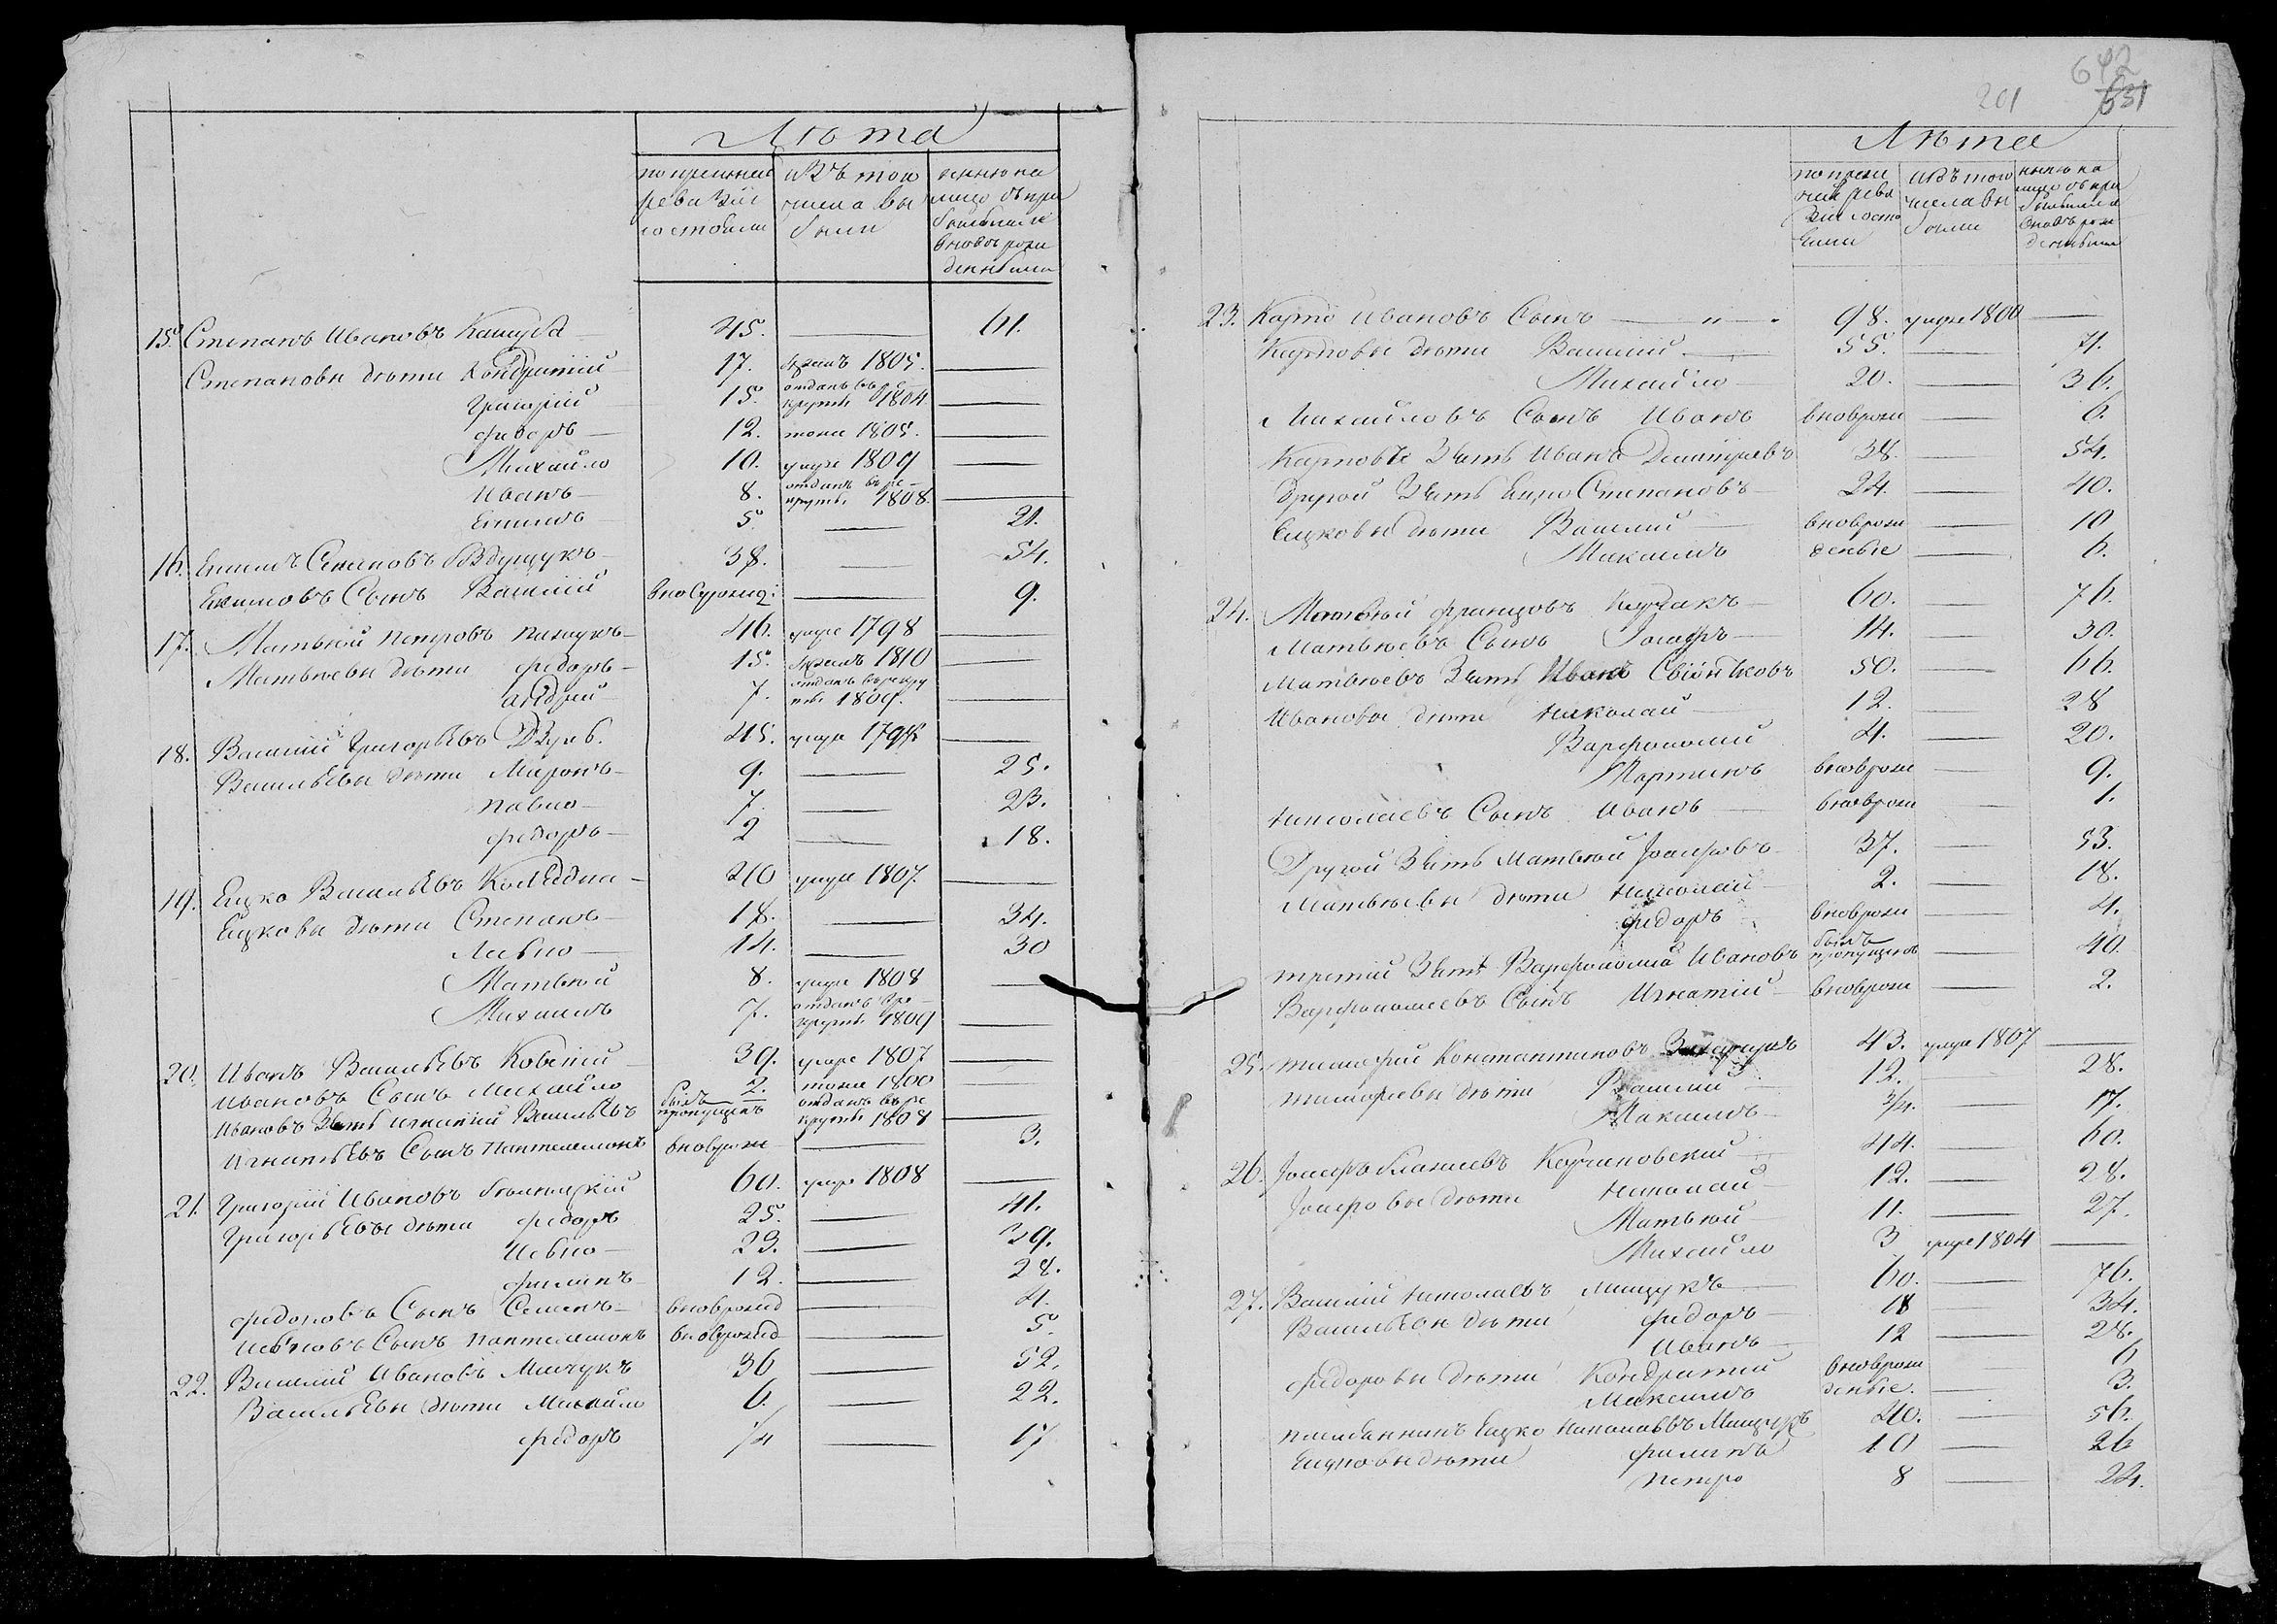 Лѣта
по прежней ревизїи состояли
изъ того числа выбыли
нынѣ на лицо съ прибылыми и вновь рожденными
15. Степанъ Ивановъ 45. — 61.
Степановы дѣти Кондратїй 17. 1805. —
Григорїй 15. отданъ въ рекруты 1804 —
Федоръ 12. тоже 1805. —
Михайло 10. умре 1809 —
Иванъ 8. отданъ въ рекруты 1808. —
Екимъ 5 — 21.
16. Екимъ 38. — 54.
Екимовъ Сынъ Василїй вноворожд: — 9.
17. Матвѣй Петровъ 46. умре 1798 —
Матвѣевы дѣти Федоръ 15. 1810 —
Андрей 7. отданъ въ рекруты 1809. —
18. Василїй Григорьевъ 45. умре —
Васильевы дѣти Миронъ 9. — 25.
Павло 7 — 23.
Федоръ 2 — 18.
19. Ицко Васильевъ 40 умре 1807. —
Ицковы дѣти Степанъ 18. — 34.
Левко 14. — 30
Матвѣй 8. умре 1808 —
Михаилъ 7. отданъ въ рекруты 1809 —
20. Иванъ Васильевъ 39. умре 1807 —
Ивановъ Сынъ Михайло 2. тоже 1800 —
Ивановъ Зять Игнатїй Васильевъ былъ пропущенъ отданъ въ рекруты 1808 —
Игнатьевъ Сынъ Пантелемонъ вноворож — 3.
21. Григорїй Ивановъ 60. умре 1808 —
Григорьевы дѣти Федоръ 25. — 41.
Ивко 23. — 39.
Филипъ 12. — 28.
Федоровъ Сынъ Семенъ вноворожд — 4.
Сынъ Пантелемонъ вноворожд — 5.
22. Василїй Ивановъ 36 — 52.
Васильевы дѣти Михайло 6. — 22.
Федоръ — 17
642
201 631
Лѣта
по прежней ревизїи состояли
изъ того числа выбыли
нынѣ на лицо съ прибылыми и вновь рожденными
23. Карпо Ивановъ Сынъ — „ — 98. умре 1800 —
Карповы дѣти Василїй 55. — 71.
Михайло 20. — 36.
Михайловъ Сынъ Иванъ вноврож — 6.
Карповъ Зять Иванъ 38. — 54.
Другой Зять Ицко Степановъ 24. — 40.
Ицковы дѣти Василїй вноврож — 10
Максимъ денные — 6.
24. Матвѣй Францовъ 60. — 76.
Матвѣевъ Сынъ Іосифъ 14. — 30.
Матвѣевъ Зять Иванъ 50. — 66.
Ивановы дѣти Николай 12. — 28
Варфоломей 4. — 20.
Мартинъ вноврож — 9.
Николаевъ Сынъ Иванъ вноврож — 1.
Другой Зять Матвѣй Іосифовъ 37. — 53.
Матвѣевы дѣти Николай 2. — 18.
Федоръ вноврож — 4.
третїй Зять Варфоломей Ивановъ былъ пропущенъ — 40.
Варфоломеевъ Сынъ Игнатїй вноврож — 2.
25. Тимофей Константиновъ 43. умре 1807 —
Тимофеевы дѣти Василїй 12. — 28.
Максимъ 3/4. — 17.
26. Іосифъ 44. — 60.
Іосифовы дѣти Николай 12. — 28.
Матвѣй 11. — 27.
Михайло 3 умре 1804 —
27. Василїй Николаевъ Мищукъ 60. — 76.
Васильевы дѣти Федоръ 18 — 34.
Иванъ 12 — 28.
Федоровы дѣти Кондратїй вноврож — 6
Максимъ денные. — 3.
племянникъ Ицко Николаевъ Мищукъ 40. — 56.
Ицковы дѣти Филипъ 10 — 26
Петро 8 — 24.